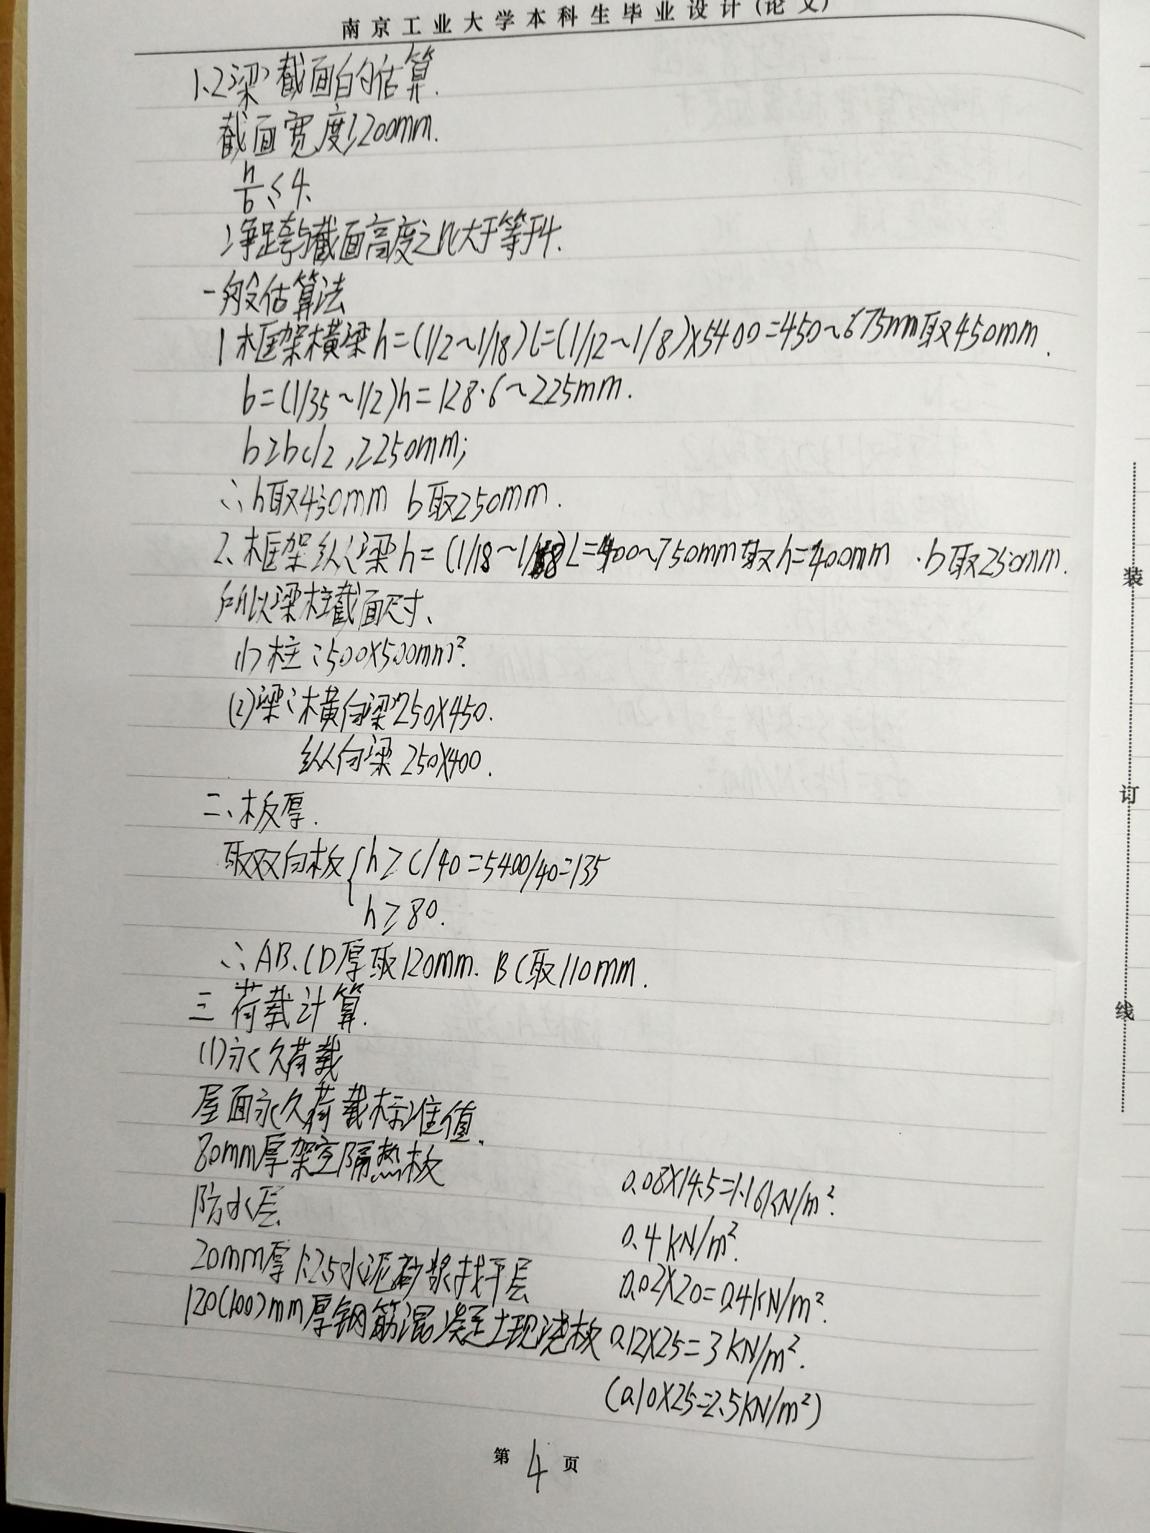 南京工业大学本科生毕业设计(论文)
1.2梁截面的估算.
截面宽度≥200mm.
h/b≤4.
净跨与截面高度之比大于等于4.
一般估算法
1 框架横梁h=(1/2~1/18)l=(1/12~1/8)×5400=450~675mm取450mm.
b=(1/35~1/2)h=128.6~225mm.
b≥bc/2,≥250mm;
∴h取450mm b取250mm.
2.框架纵梁h=(1/18~1/8)l=400~750mm取h=400mm.b取250mm.
所以梁柱截面尺寸、
(1)柱:500×500mm².
(2)梁:横向梁250×450.
纵向梁 250×400.
二、板厚.
取双向板{h≥l/40=5400/40=135
h≥80.
∴AB、CD厚取120mm. BC取110mm.
三 荷载计算.
(1)永久荷载
屋面永久荷载标准值.
80mm厚架空隔热板 0.08×14.5=1.16kN/m².
防水层 0.4kN/m².
20mm厚1:2.5水泥砂浆找平层 0.02×20=0.4kN/m².
120(100)mm厚钢筋混凝土现浇板 0.12×25=3kN/m².
(0.10×25=2.5kN/m²)
第4页
装
订
线